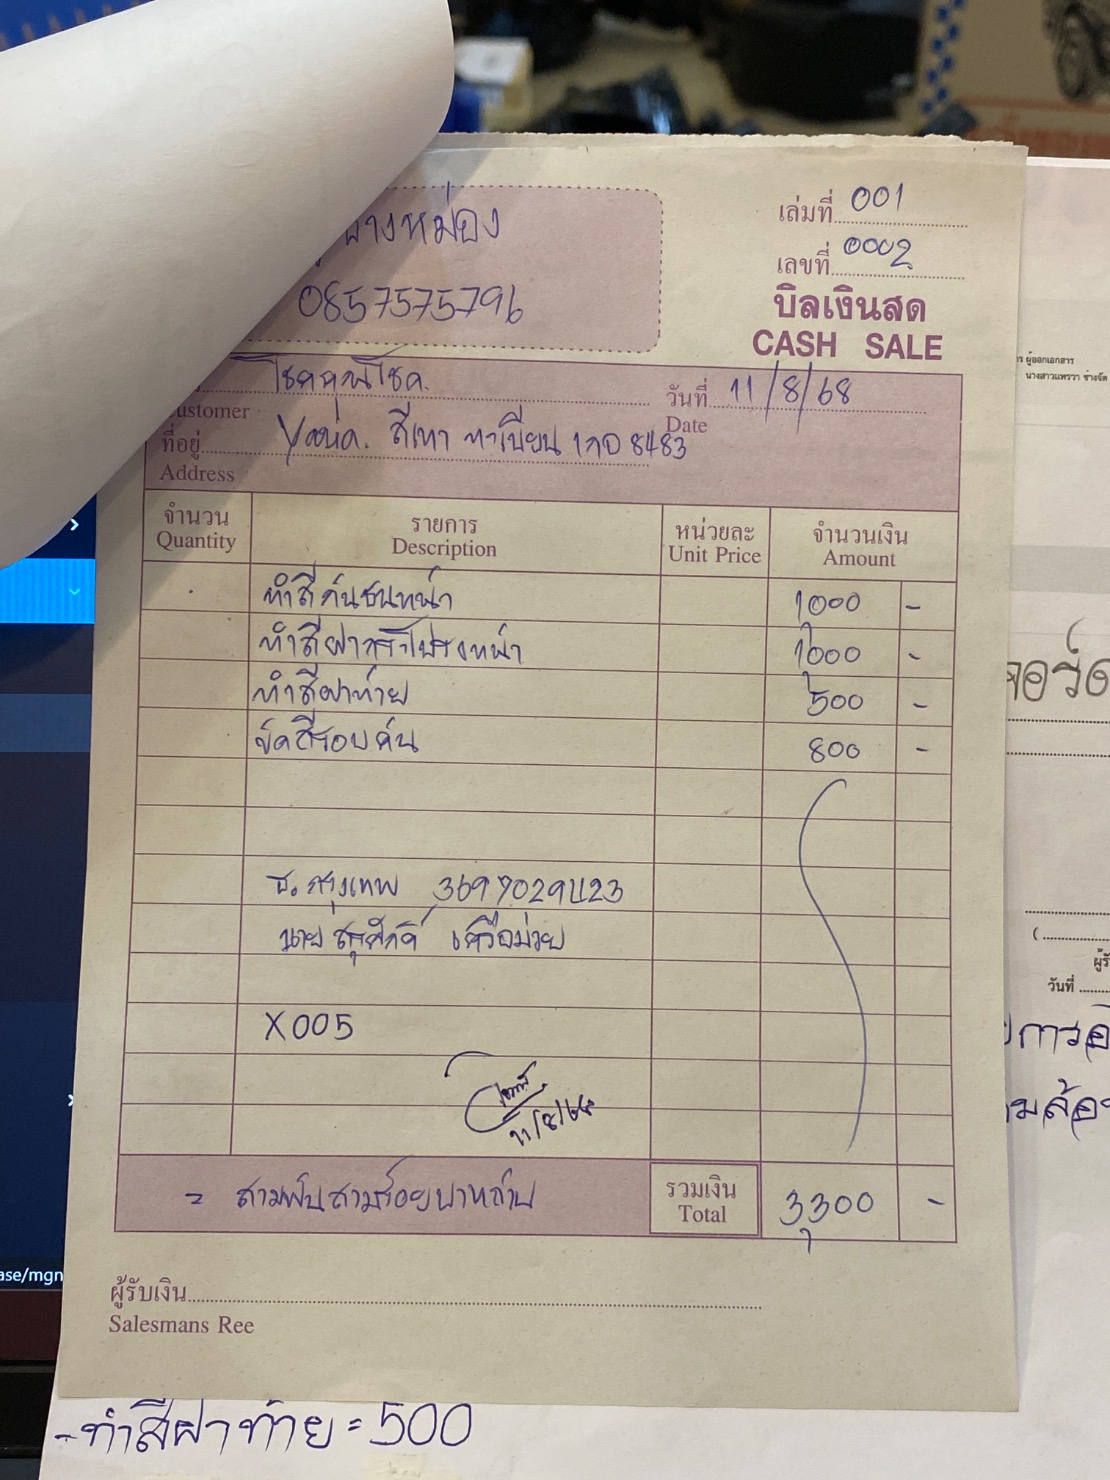 ช่างหม่อง
0857575796
เล่มที่ 001
เลขที่ 0002
บิลเงินสด
CASH SALE
โชคคูณโชค.
ustomer
วันที่ 11/8/68
Date
ที่อยู่ Yaris. สีเทา ทะเบียน 1กอ 8483
Address
จำนวน รายการ หน่วยละ จำนวนเงิน
Quantity Description Unit Price Amount
ทำสีกันชนหน้า 1000 -
ทำสีฝากระโปรงหน้า 1,000 -
ทำสีฝาท้าย 500 -
ขัดสีรอบคัน 800 -
ธ.กรุงเทพ 3697029423
นาย เครือม่วย
X005
11/8/68
= สามพันสามร้อยบาทถ้วน รวมเงิน 3,300 -
Total
ผู้รับเงิน
Salesmans Ree
- ทำสีฝาท้าย = 500
ผู้ออกเอกสาร
นางสาวแพรวา ช่างจัด
จอร์ด
(
ผู้รั
วันที่
ase/mgn